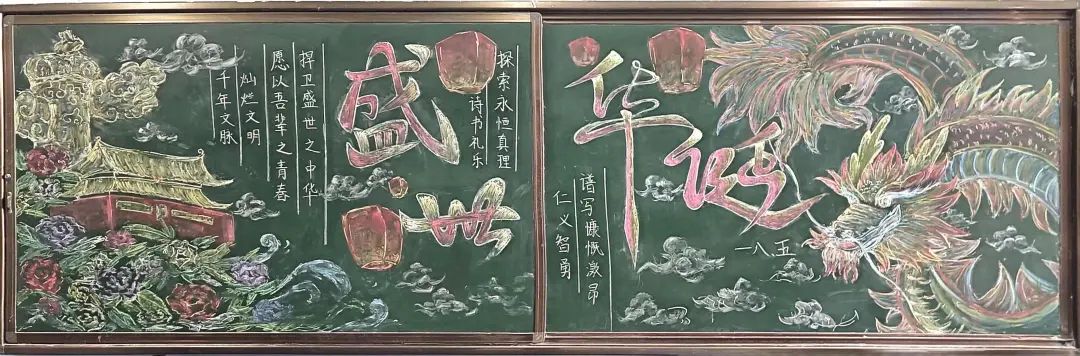 千年文脉
灿烂文明
愿以吾辈之青春
捍卫盛世之中华
盛世
诗书礼乐
探索永恒真理
华诞
仁义智勇
谱写慷慨激昂
一八五